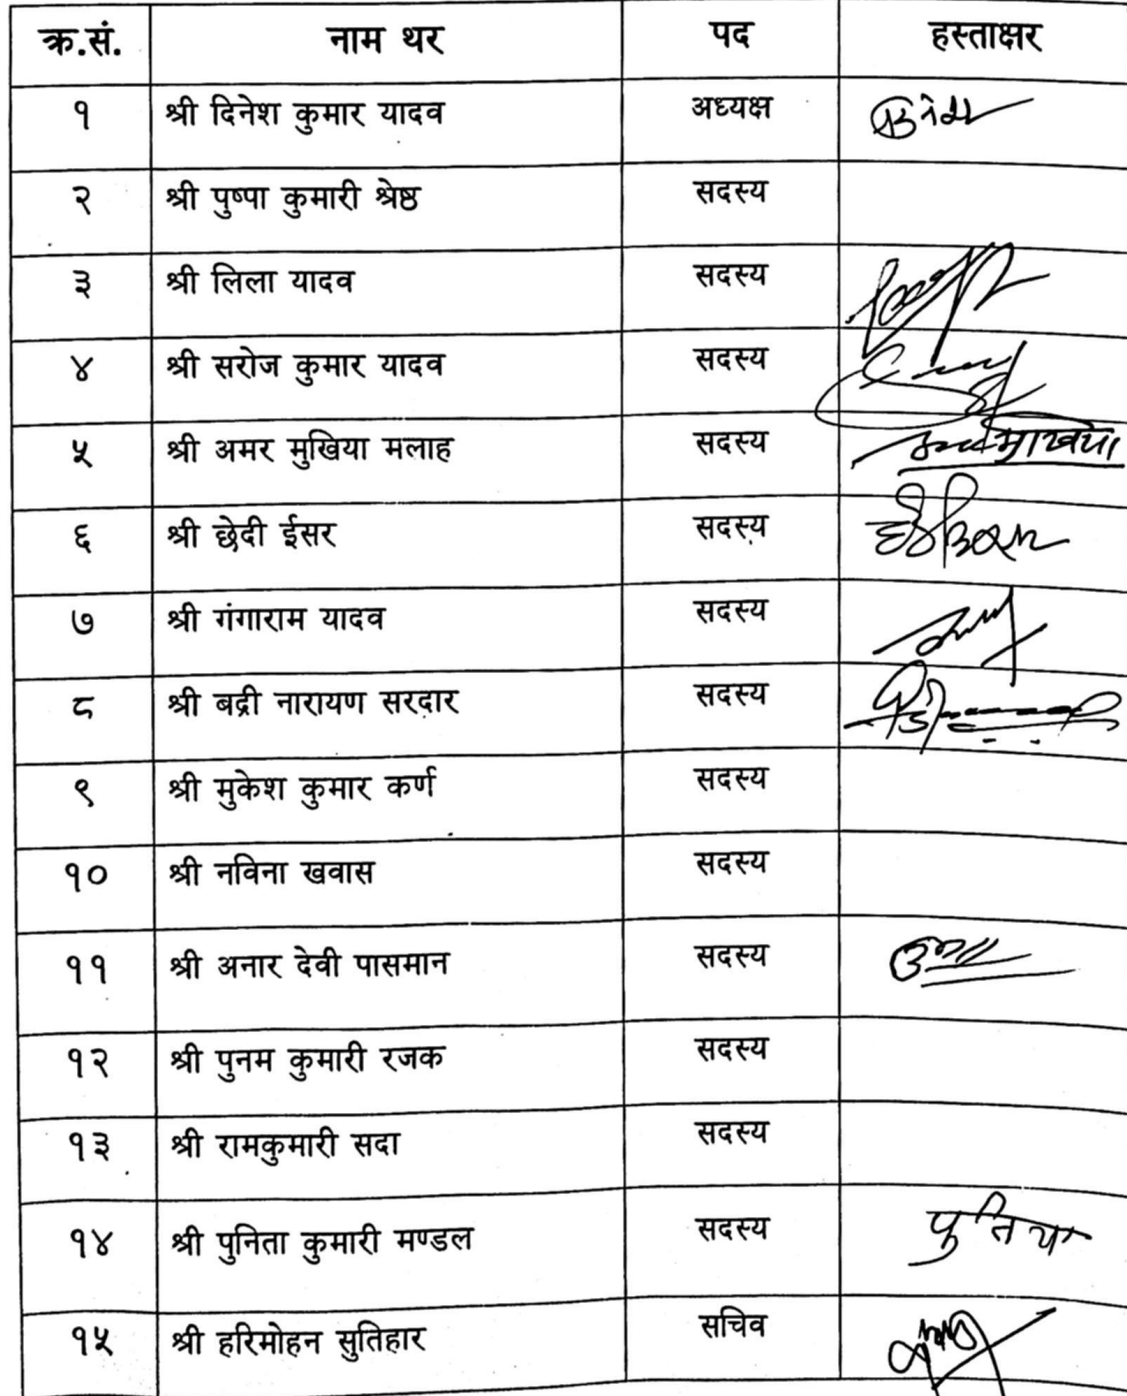 क्र.सं. नाम थर पद हस्ताक्षर
१ श्री दिनेश कुमार यादव अध्यक्ष
२ श्री पुष्पा कुमारी श्रेष्ठ सदस्य
३ श्री लिला यादव सदस्य
४ श्री सरोज कुमार यादव सदस्य
५ श्री अमर मुखिया मलाह सदस्य
६ श्री छेदी ईसर सदस्य
७ श्री गंगाराम यादव सदस्य
८ श्री बद्री नारायण सरदार सदस्य
९ श्री मुकेश कुमार कर्ण सदस्य
१० श्री नविना खवास सदस्य
११ श्री अनार देवी पासमान सदस्य
१२ श्री पुनम कुमारी रजक सदस्य
१३ श्री रामकुमारी सदा सदस्य
१४ श्री पुनिता कुमारी मण्डल सदस्य
१५ श्री हरिमोहन सुतिहार सचिव